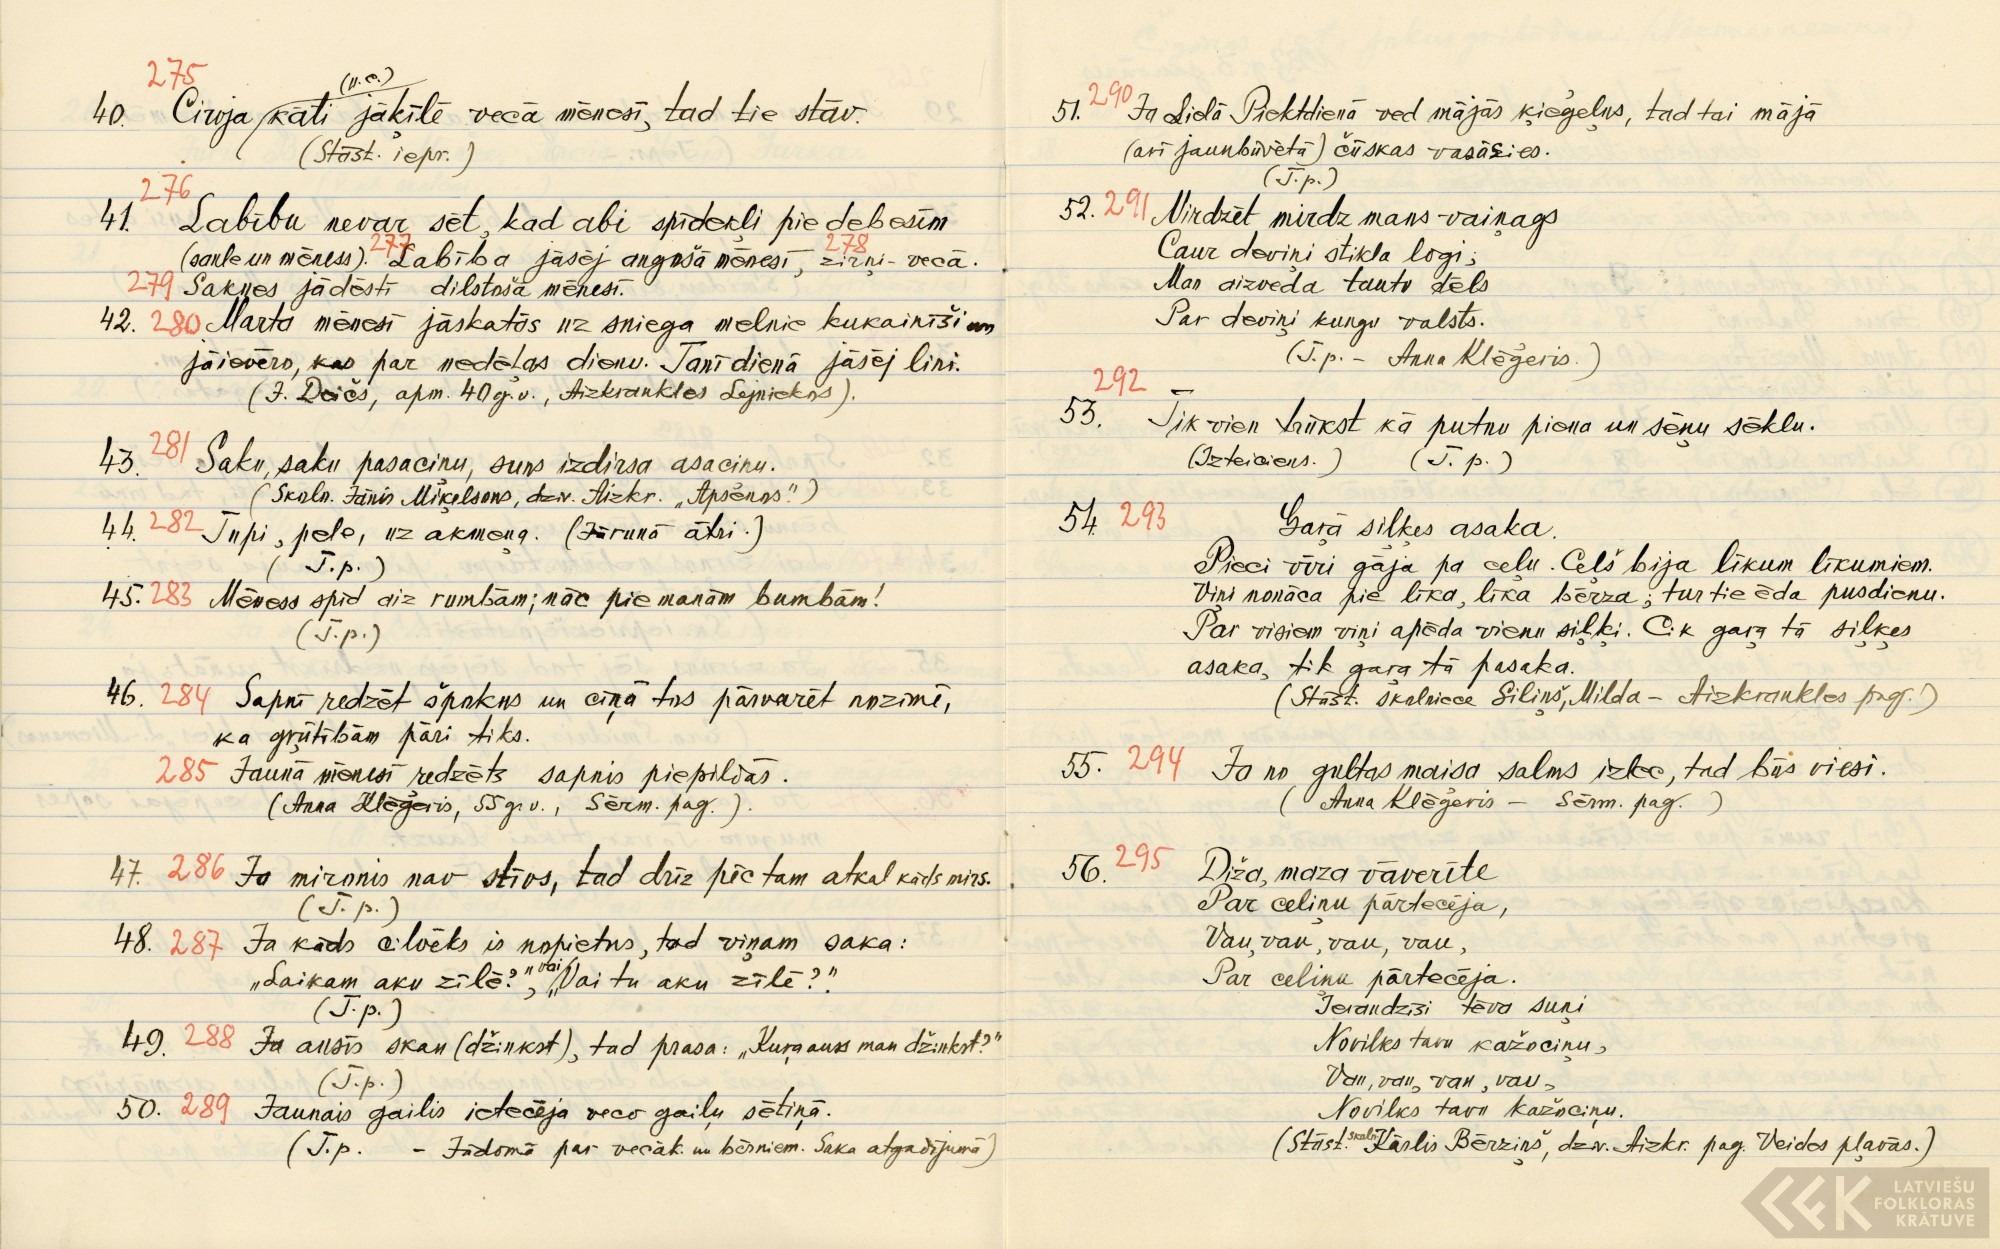 275
(u.c.)
40. Cirvja kāti jāķīlē vecā mēnesī, tad tie stāv.
(Stāst. iepr.)
276
41. Labību nevar sēt, kad abi spīdekļi pie debesīm
(saule un mēness). 277 Labība jāsēj augošā mēnesī, 278 zirņi - vecā.
279 Saknes jādēstī dilstošā mēnesī.
42. 280 Marta mēnesī jāskatās uz sniega melnie kukainīši un
jāievēro, kas par nedēļas dienu. Tanī dienā jāsēj lini.
(J. Deičs, apm. 40 g.v., Aizkraukles Lejniekos).
43. 281 Saku, saku pasaciņu, suns izdirsa asaciņu.
(Skoln. Jānis Miķelsons, dzīv. Aizkr. „Apsēnos.")
44. 282 Tupi, pele, uz akmeņa. (Jārunā ātri.)
(T.p.)
45. 283 Mēness spīd aiz rumbām; nāc pie manām bumbām!
(T.p.)
46. 284 Sapnī redzēt špokus un cīņā tos pārvarēt nozīmē,
ka grūtībām pāri tiks.
285 Jaunā mēnesī redzēts sapnis piepildās.
(Anna Klēģeris, 55 g.v., Sērm. pag.).
47. 286 Ja mironis nav stīvs, tad drīz pēc tam atkal kāds mirs.
(T.p.)
48. 287 Ja kāds cilvēks is nopietns, tad viņam saka:
„Laikam aku zīlē?", vai „Vai tu aku zīlē?".
(T.p.)
49. 288 Ja ausīs skan (džinkst), tad prasa: „Kuŗa auss man džinkst?"
(T.p.)
50. 289 Jaunais gailis ietecēja veco gaiļu sētiņā.
(T.p. - Jādomā par vecāk. un bērniem. Saka atgadījumā)
51. 290 Ja Lielā Piektdienā ved mājās ķieģeļus, tad tai mājā
(arī jaunbūvētā) čūskas vasāsies.
(T.p.)
52. 291 Mirdzēt mirdz mans vaiņags
Caur deviņi stikla logi;
Man aizveda tautu dēls
Par deviņi kungu valsts.
(T.p. - Anna Klēģeris.)
292
53. Tik vien trūkst kā putnu piena un sēņu sēklu.
(Izteiciens.) (T.p.)
54. 293 Gaŗā siļķes asaka.
Pieci vīri gāja pa ceļu. Ceļš bija līkum līkumiem.
Viņi nonāca pie līka, līka bērza; tur tie ēda pusdienu.
Par visiem viņi apēda vienu siļķi. Cik gaŗa tā siļķes
asaka, tik gaŗa tā pasaka.
(Stāst. skolniece Siliņš, Milda - Aizkraukles pag.)
55. 294 Ja no gultas maisa salms izlec, tad būs viesi.
(Anna Klēģeris - Sērm. pag.)
56. 295 Diža, maza vāverīte
Par celiņu pārtecēja,
Vau, vau, vau, vau,
Par celiņu pārtecēja.
Ieraudzīsi tēva suņi
Novilks tavu kažociņu,
Vau, vau, vau, vau,
Novilks tavu kažociņu.
(Stāst. skoln. Kārlis Bērziņš, dzīv. Aizkr. pag. Veides pļavās.)
LATVIEŠU
FOLKLORAS
KRĀTUVE